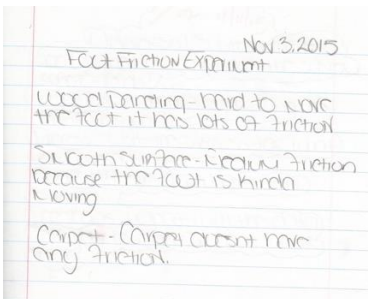 Nov 3.2015
Foot Friction Experiment
Wood Dancing - hard to move
the foot it has lots of friction
Smooth surface - Medium friction
because the foot is kinda
moving
Carpet - Carpet doesnt have
any friction.